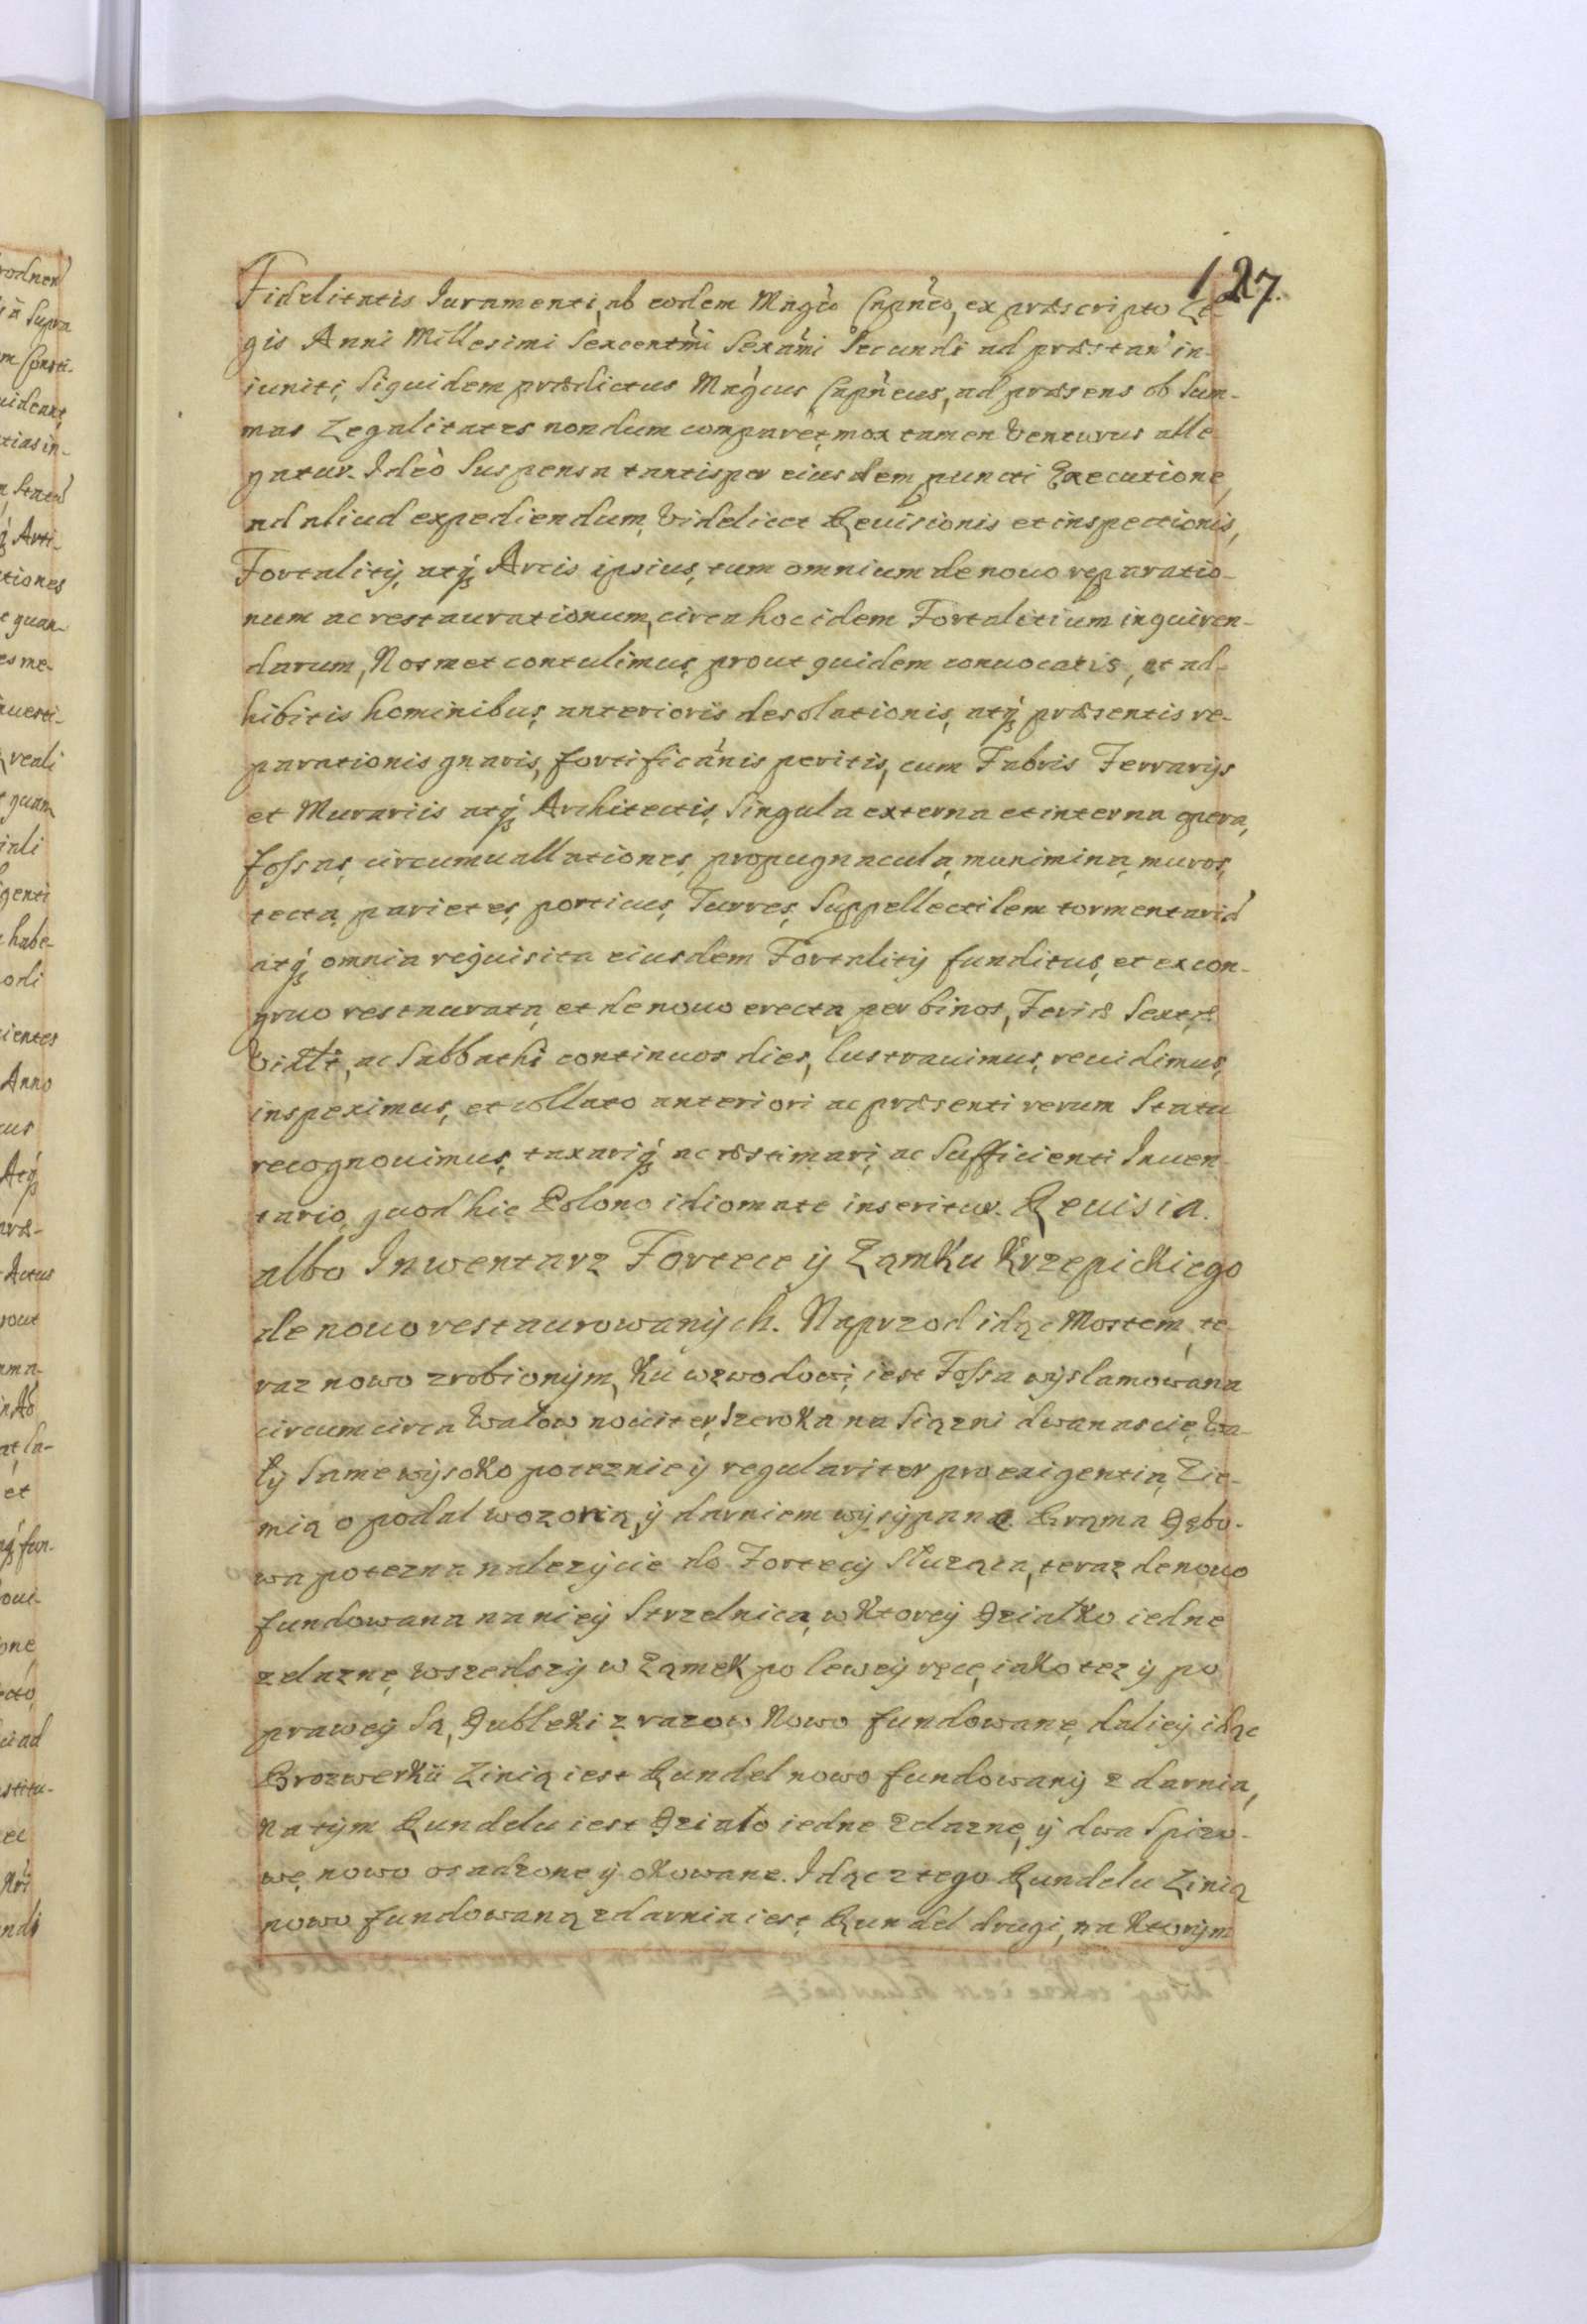 127.
Fidelitatis Iuramenti, ab eodem Magco Capneo, ex præscripto Le-
gis Anni Millesimi Sexcentmi Sexami Secundi ad præstan in-
iuncti, Siquidem prædictus Magcus Capneus, ad præsens ob Sum-
mas Legalitates nondum comparet, mox tamen Venturus alle-
gatur. Ideò Suspensa tantisper eiusdem puncti Executione,
ad aliud expediendum, Videlicet Reuisionis et inspectionis,
Fortalitÿ, atq Arcis ipsius, tum omnium denouo reparatio-
num ac restaurationum, circa hoc idem Fortalitium inquiren-
darum, Nosmet contulimus, prout quidem conuocatis, et ad-
hibitis hominibus, anterioris desolationis, atq præsentis re-
parationis gnaris, fortificãnis peritis, cum Fabris Ferrarijs
et Murariis atq Architectis, Singula externa et interna opera,
fossas, circumuallationes, propugnacula, munimina, muros,
tecta, parietes, porticus, Turres, Suppellectilem tormentariã
atq omnia requisita eiusdem Fortalitÿ funditus, et ex con-
gruo restaurata, et denouo erecta, per binos, Feriæ Sextæ
Vizlt, ac Sabbathi continuos dies, lustrauimus, reuidimus,
inspeximus, et collato anteriori ac præsenti rerum Statu
recognouimus, taxariq ac æstimari, ac Sufficienti Inuen-
tario, quod hic Polono idiomate inseritur. Reuisia.
albo Inwentarz Fortece ÿ Zamku Krzepickiego
denouo restaurowanÿch. Naprzod idąc Mostem, te-
raz nowo zrobionÿm, Ku wzwodowi, iest Fossa wÿslamowana
circumcirca Wałow nouiter, Szeroka na Siązni dwanascie, Wa-
łÿ Same wÿsoko poteznie ÿ regulariter pro exigentia, Zie-
mią opodal wozoną, ÿ darniem wÿsÿpane. Brąma Dębo-
wa potezna nalezÿcie do Fortecÿ Słuząca, teraz denouo
fundowana na nieÿ Strzelnica, w Ktoreÿ Działko iedne
zelazne, wszedszÿ w Zamek po leweÿ ręce, iako tez ÿ po
praweÿ Są, Dubleki z razow Nowo fundowane, dalieÿ idąc
Brozwerku Linią iest Rundel nowo fundowanÿ z darnia,
Na tÿm Rundelu iest Działo iedne Zelazne, ÿ dwa Spizo-
we, nowo osadzone ÿ okowane. Idąc z tego Rundelu Linią
nowo fundowaną z darnia iest, Rundel drugi, na Ktorÿm